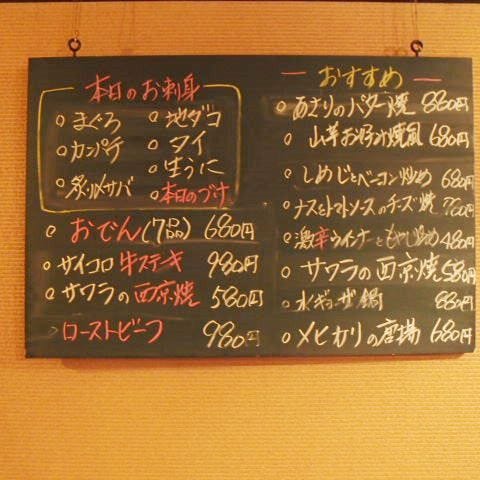 本日のお刺身
○まぐろ ○地ダコ
○カンパチ ○タイ
○炙り〆サバ ○生うに
○本日のヅケ
○おでん(7品) 680円
○サイコロ牛ステキ 980円
○サワラの西京焼 580円
○ローストビーフ 980円
— おすすめ —
○あさりのバター焼 880円
○山芋お好み焼風 680円
○しめじとベーコン炒め 680円
○ナスとトマトソースのチーズ焼 760円
○激辛ウインナーともやし炒め 480円
○サワラの西京焼 580円
○水ギョーザ鍋 880円
○メヒカリの唐揚 680円